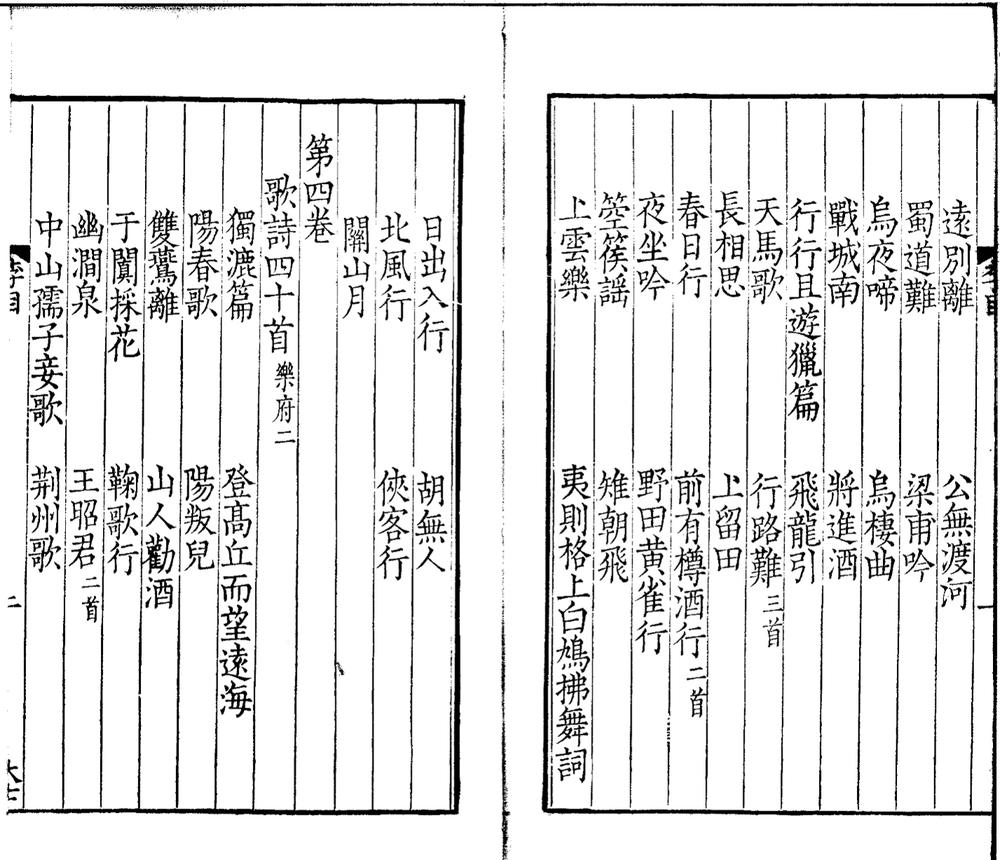 遠別離 公無渡河
蜀道難 梁甫吟
烏夜啼 烏棲曲
戰城南 將進酒
行行且遊獵篇 飛龍引
天馬歌 行路難三首
長相思 上留田
春日行 前有樽酒行二首
夜坐吟 野田黄雀行
箜篌謡 雉朝飛
上雲樂 夷則格上白鳩拂舞詞
日出入行 胡無人
北風行 俠客行
關山月
第四卷
歌詩四十首樂府二
獨漉篇 登髙丘而望遠海
陽春歌 陽叛兒
雙鷰離 山人勸酒
于闐採花 鞠歌行
幽澗泉 王昭君二首
中山孺子妾歌 荆州歌
李目
二